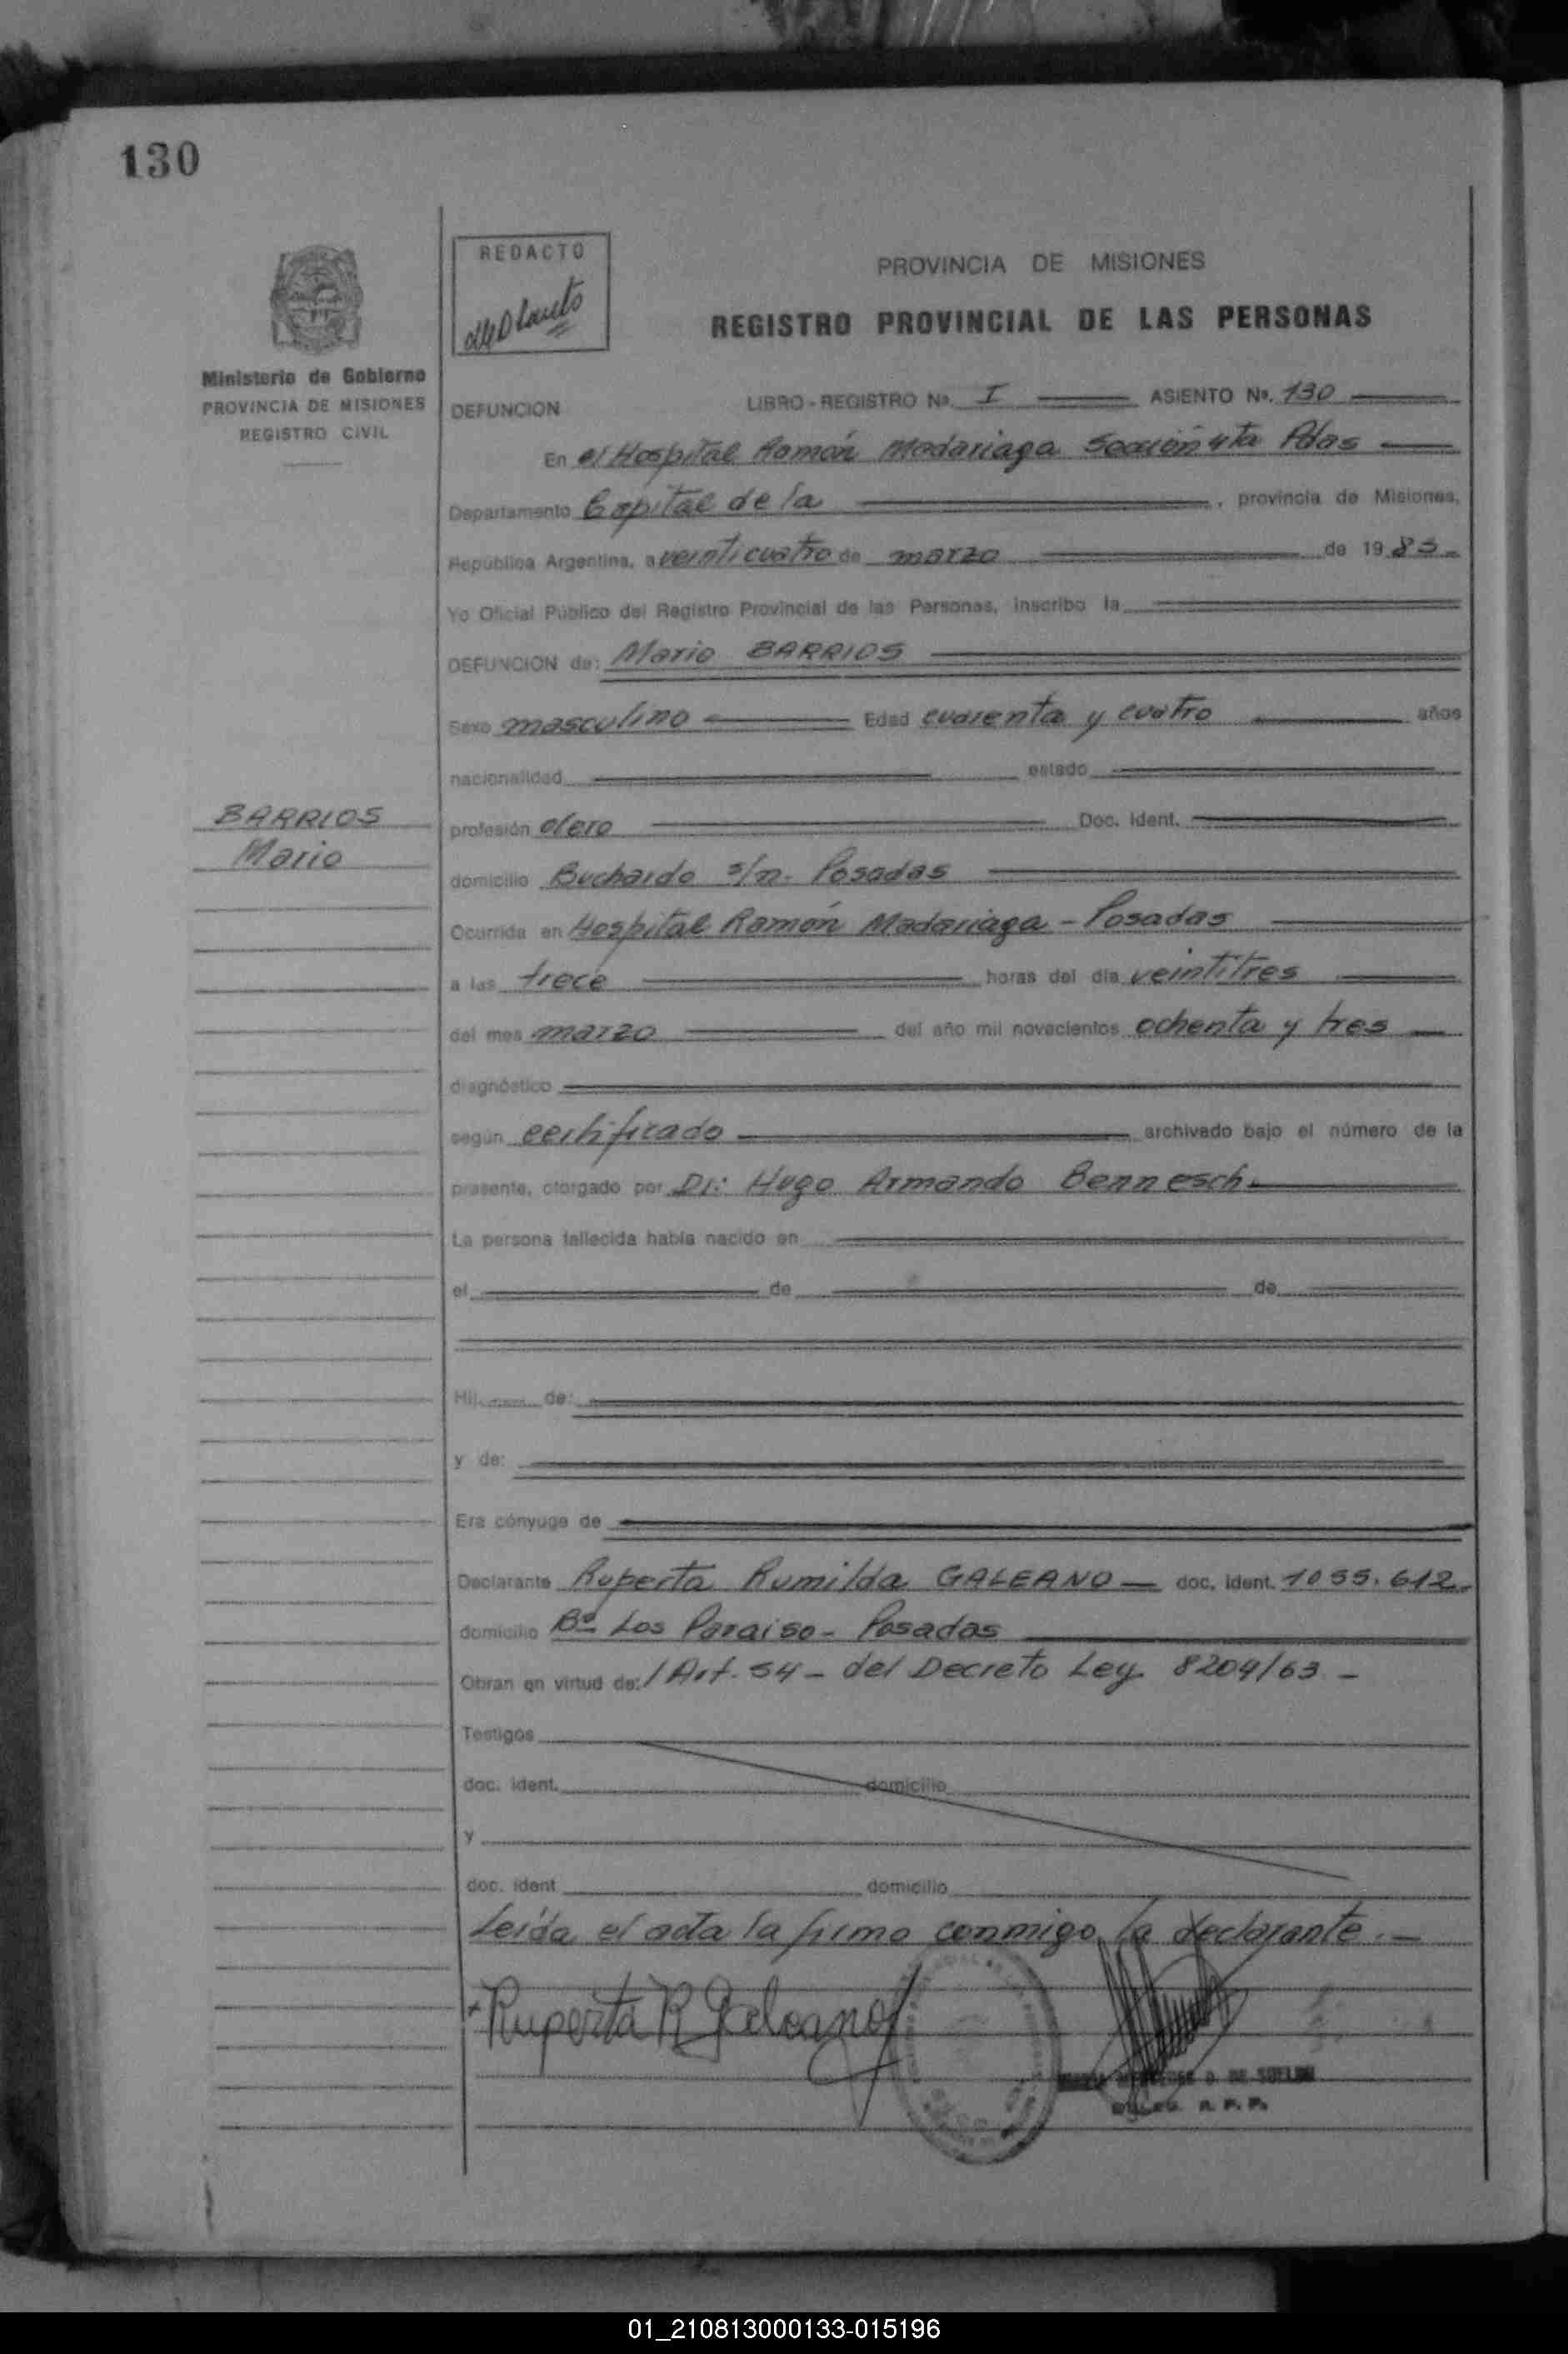 130
REDACTO
PROVINCIA DE MISIONES
REGISTRO PROVINCIAL DE LAS PERSONAS
Ministerio de Gobierno
PROVINCIA DE MISIONES
REGISTRO CIVIL
DEFUNCION LIBRO-REGISTRO Nº. I ASIENTO Nº. 130
En el Hospital Ramón Madariaga Sección 4ta Pdas
Departamento Capital de la , provincia de Misiones,
República Argentina, a veinticuatro de marzo de 1983
Yo Oficial Público del Registro Provincial de las Personas, inscribo la
DEFUNCION de: Mario BARRIOS
Sexo masculino Edad cuarenta y cuatro años
nacionalidad estado
BARRIOS
Mario
profesión olero Doc. Ident.
domicilio Buchardo s/n. Posadas
Ocurrida en Hospital Ramón Madariaga - Posadas
a las trece horas del día veintitres
del mes marzo del año mil novecientos ochenta y tres
diagnóstico
según certificado archivado bajo el número de la
presente, otorgado por Dr: Hugo Armando Bennesch.
La persona fallecida había nacido en
el de de
Hij de:
y de:
Era cónyuge de
Declarante Ruperta Rumilda GALEANO - doc. ident. 1055.612.
domicilio Bº Los Paraiso - Posadas
Obran en virtud de: / Art. 54 - del Decreto Ley 8204/63 -
Testigos
doc. ident. domicilio
y
doc. ident domicilio
Leída el acta la firmo conmigo la declarante . -
Ruperta R Galeano
D. DE
R. P. P.
01_210813000133-015196